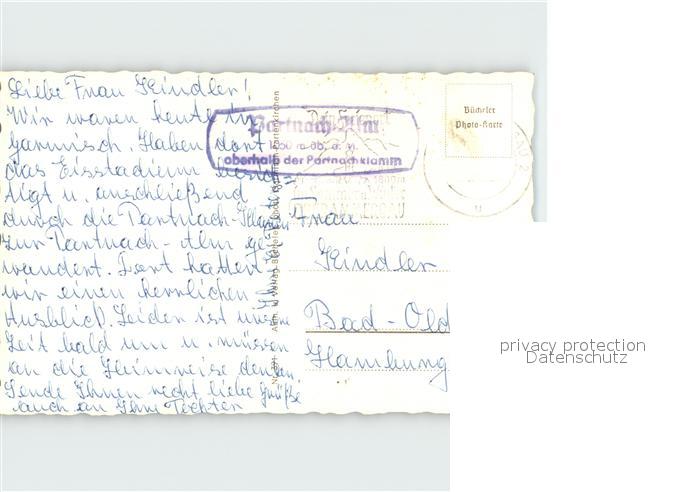 Liebe Frau Kindler!
Wir waren heute in
Garmisch. Haben dort
das Eisstadium besich=
tigt u. anschließend
durch die Partnach-Klamm
zur Partnach-Alm ge=
wandert. Dort hatten
wir einen herrlichen
Ausblick. Leider ist unsere
Zeit bald um u. müssen
an die Heimreise denken
Sende Ihnen recht liebe Grüße
auch an Ihre Tochter
Partnach-Alm
oberhalb der Partnachklamm
Bücheler
Photo-Karte
Frau
Kindler
Bad-Old
Hamburg
privacy protection
Datenschutz